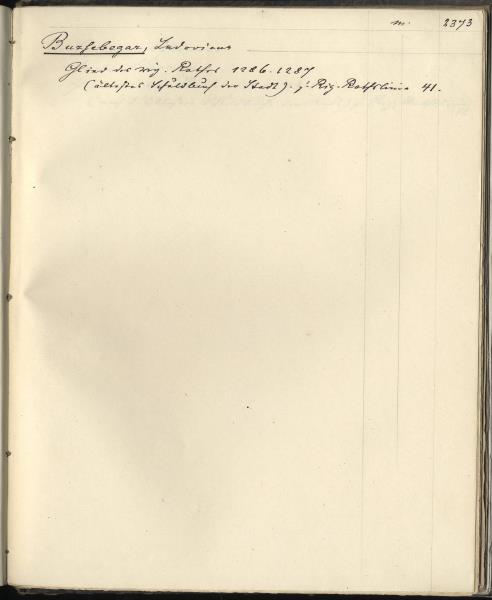 m. 2373
Buxhebegar, Ludovicus
Glied des rig. Rathes 1286. 1287
(ältestes Schuldbuch der Stadt). j. Rig. Rathslinie 41.